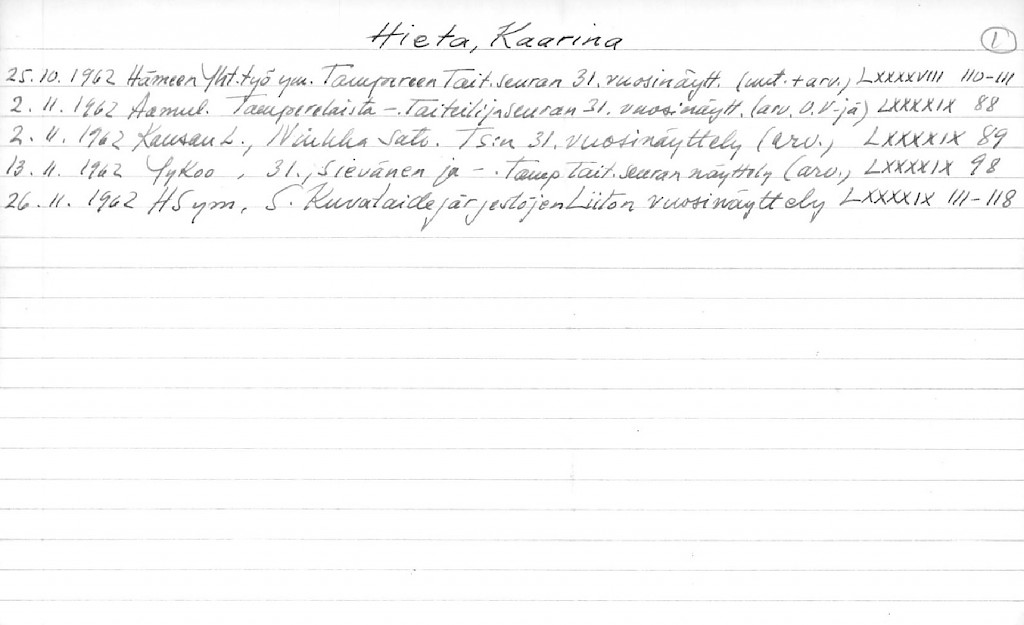 Hieta, Kaarina
1
25.10.1962 Hämeen Yht.työ ym. Tampereen Tait.seuran 31.vuosinäytt. (uut.+arv.) LXXXXVIII 110-111
2.11.1962 Aamul. Tamperelaista -. Taiteilijaseuran 31.vuosinäytt. (arv. O.V-jä) LXXXXIX 88
2.11.1962 Kansan L., Niukka sato. TS:n 31.vuosinäyttely (arv.) LXXXXIX 89
13.11.1962 31., Sievänen ja -. Tamp Tait.seuran näyttely (arv.) LXXXXIX 98
26.11.1962 HS ym, S. Kuvataidejärjestöjen Liiton vuosinäyttely LXXXXIX 111-118